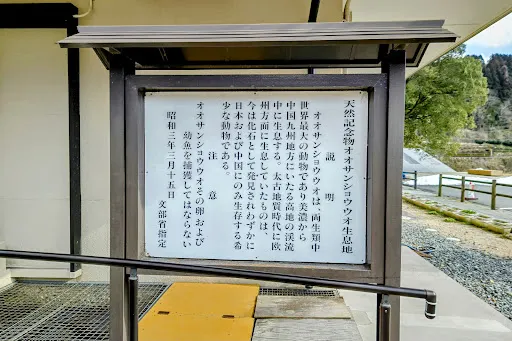 天然記念物オオサンショウウオ生息地
説明
オオサンショウウオは、両生類中
世界最大の動物であり美濃から
中国九州地方にいたる高地の渓流
中に生息する。太古地質時代に欧
州方面に生息していたものは、
今は化石として発見されわずかに
日本および中国にのみ生存する希
少な動物である。
注意
オオサンショウウオその卵および
幼魚を捕獲してはならない
昭和三年三月十五日
文部省指定